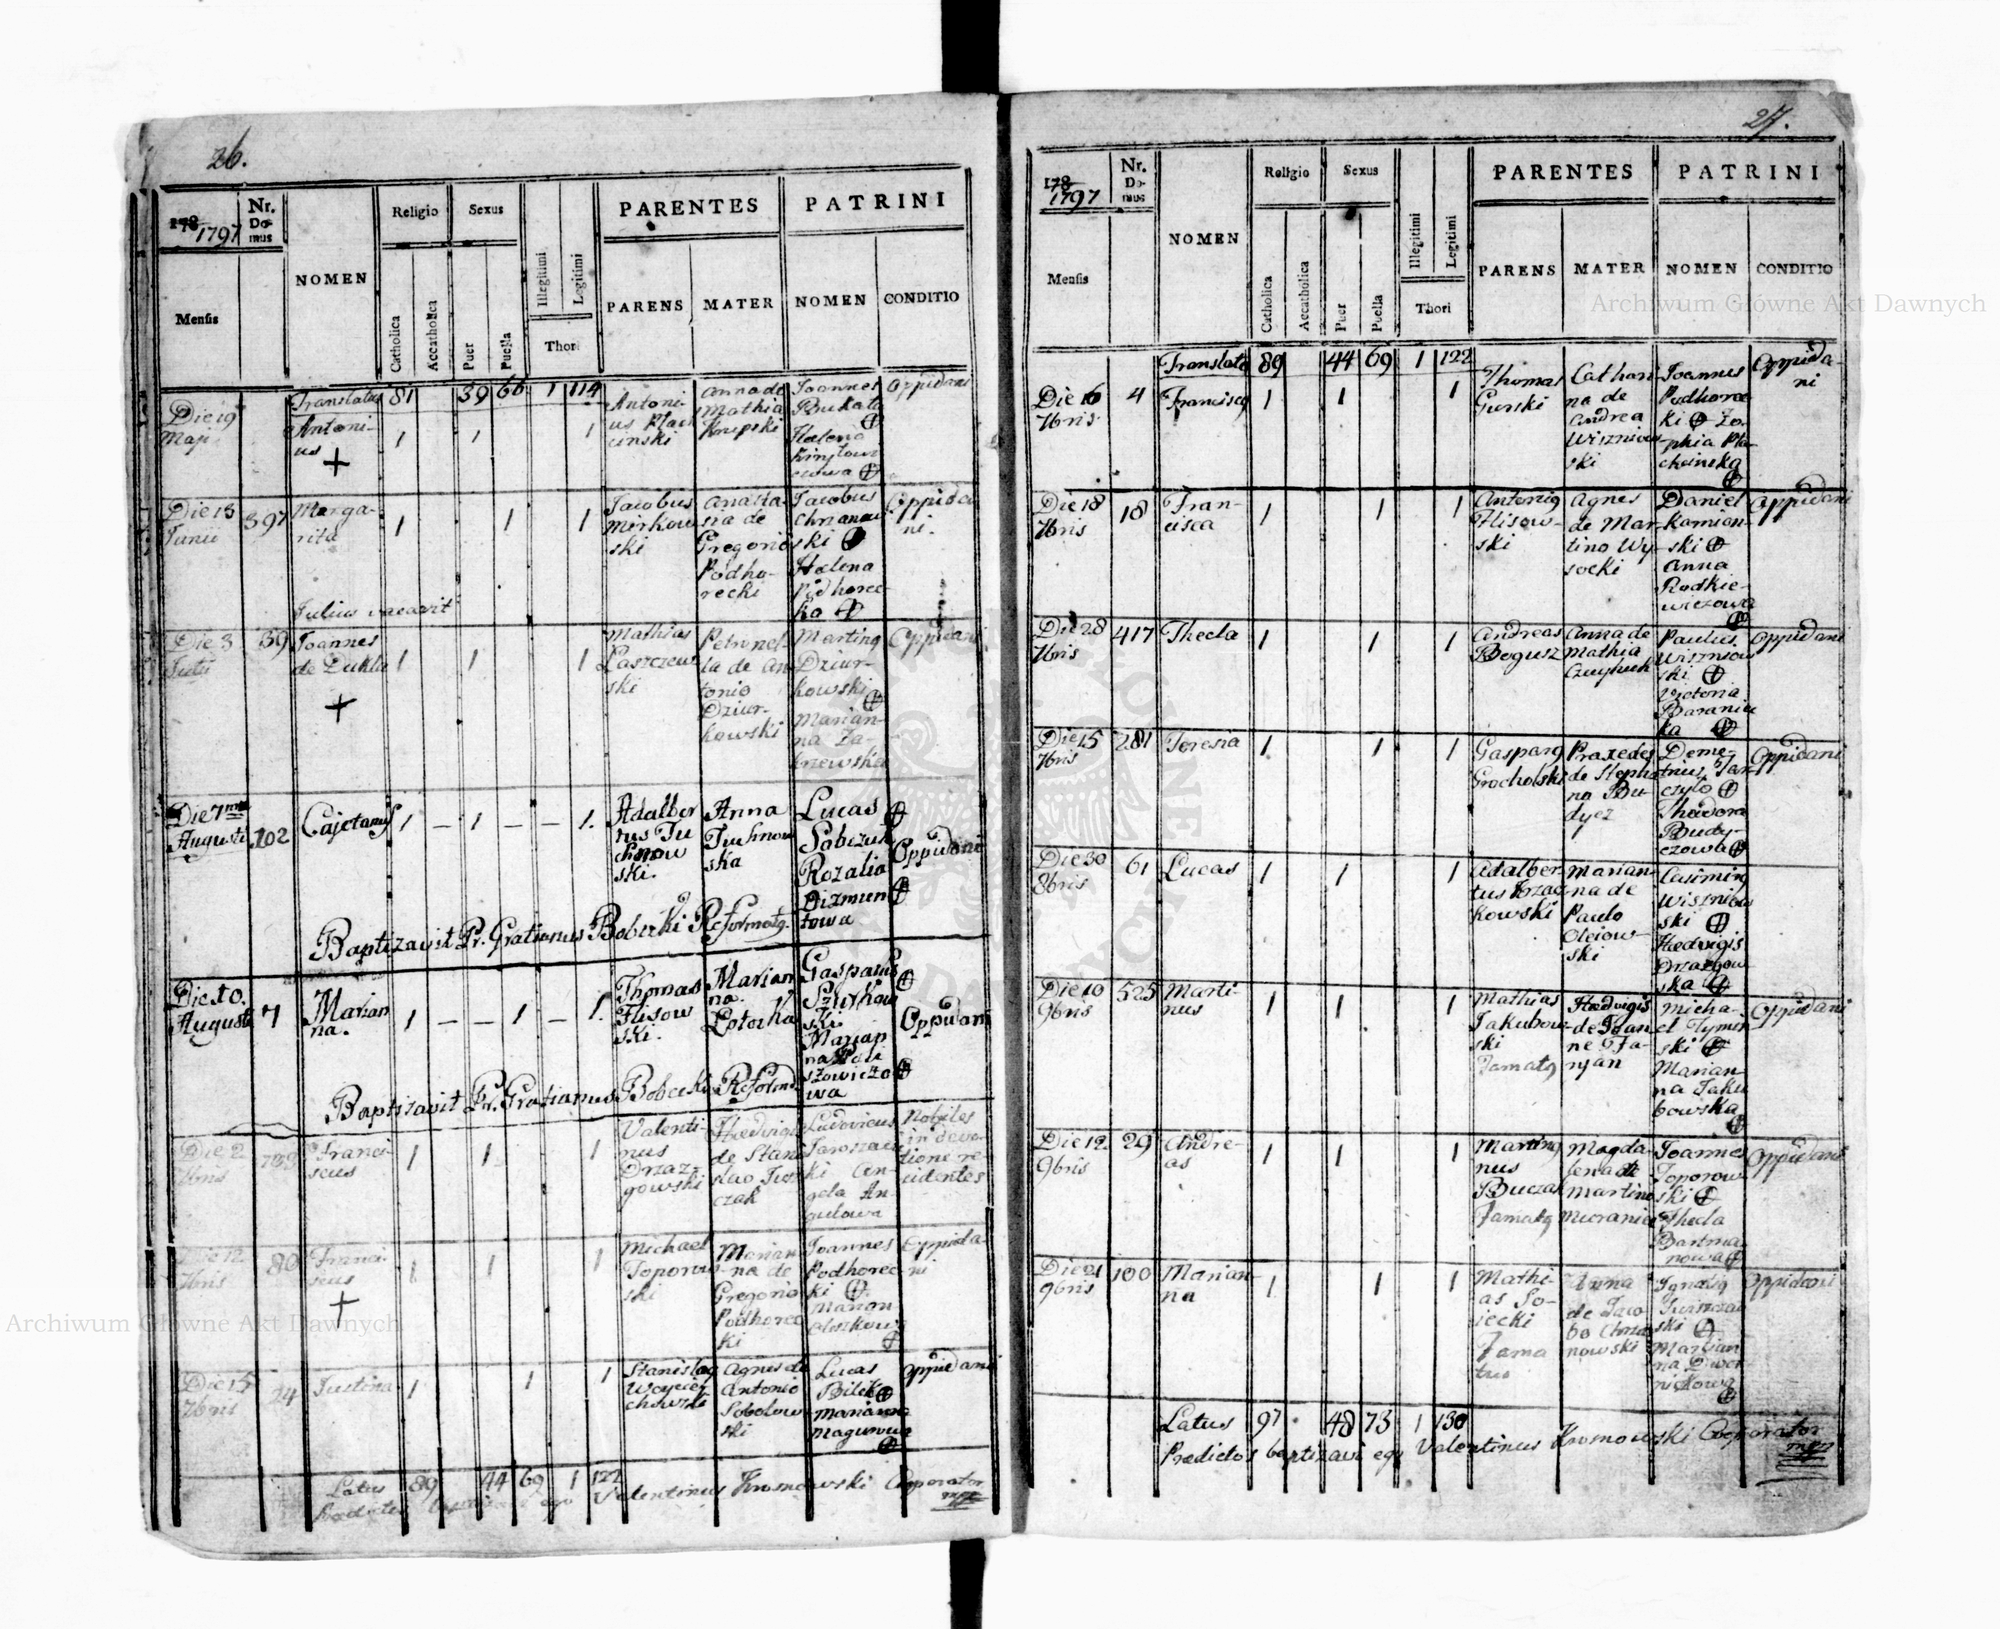 26.
178/1797
Nr. Domus
NOMEN
Religio
Sexus
Illegitimi
Legitimi
PARENTES
PATRINI
Mensis
Catholica
Accatholica
Puer
Puella
Thori
PARENS
MATER
NOMEN
CONDITIO
Translatus 81 39 66 1 114
Die 19 Maji Antonius + 1 1 1
Antonius
Anna de Mathia Krupski
Joannes Bukata
Helena
Oppidani
Die 13 Junii 397 Margarita 1 1 1
Jacobus Mirkowski
Anastasia de Gregorio Podhorecki
Jacobus Chrzanowski
Helena Podhorecka
Oppidani.
Julius vacavit
Die 3 39 Joannes de Dukla + 1 1 1
Mathias Laszczewski
Petronella de Antonio Dziurkowski
Martinus Dziurkowski
Marianna
Oppidani
Die 7ma Augusti 102 Cajetanus 1 – 1 – – 1.
Adalbertus Tuchnowski.
Anna Tuchnowska
Lucas Sobczuk
Rozalia
Oppidani
Baptizavit Pr. Gratianus Bobecki Reformatus.
Die 10. Augusti 7 Marianna. 1 – – 1 – 1.
Thomas Flisowski.
Marianna Lotocka
Gasparus
Marianna
Oppidani
Baptizavit Pr. Gratianus Bobecki Reform.
Die 2 7bris Franciscus 1 1 1
Valentinus Drzazgowski
Hedvigis de Stanislao
Ludovicus
Angela
Nobiles in
Die 12 7bris 80 Franciscus + 1 1 1
Michael Toporowski
Marianna de Gregorio Podhorecki
Joannes Podhorecki
Marian
Oppidani
Die 15 7bris 24 Justina 1 1 1
Stanislaus
Agnes de Antonio Sobolewski
Lucas Bilik
Marianna
Oppidani
Latus 89 44 69 1 122
Praedictos baptizavi ego Valentinus Kromowski Cooperator mpp
27.
178/1797
Nr. Domus
NOMEN
Religio
Sexus
Illegitimi
Legitimi
PARENTES
PATRINI
Mensis
Catholica
Accatholica
Puer
Puella
Thori
PARENS
MATER
NOMEN
CONDITIO
Translatus 89 44 69 1 122
Die 16 7bris 4 Franciscus 1 1 1
Thomas Gurski
Catharina de Andrea Wiszniowski
Joannes Podhorecki
Zophia
Oppidani
Die 18 7bris 18 Francisca 1 1 1
Antonius Flisowski
Agnes de Martino Wysocki
Daniel Kamionski
Anna Rodkiewiczowa
Oppidani
Die 28 7bris 417 Thecla 1 1 1
Andreas Bogusz
Anna de Mathia
Paulus Wiszniowski
Victoria Baranicka
Oppidani
Die 15 281 Teresia 1 1 1
Gasparus Grocholski
Praxedes de Stephano Budycz
Demetrius
Theodora Budyczowa
Oppidani
Die 30 8bris 61 Lucas 1 1 1
Adalbertus
Marianna de Paulo Olejowski
Casimirus Wiszniowski
Hedvigis Drzazgowska
Die 10 9bris 525 Martinus 1 1 1
Mathias Jakubowski Famatus
Hedvigis de Joanne
Michael Tyminski
Marianna Jakubowska
Oppidani
Die 12 9bris 29 Andreas 1 1 1
Martinus Buczak Famatus
Magdalena de Martino
Joannes Toporowski
Thecla Bartmanowa
Oppidani
Die 21 9bris 100 Marianna 1 1 1
Mathias Sojecki Famatus
Anna de Jacobo Chrzanowski
Ignatius
Marianna
Oppidani
Latus 97 48 73 1 130
Praedictos baptizavi ego Valentinus Kromowski Cooperator mpp
Archiwum Główne Akt Dawnych
Archiwum Główne Akt Dawnych